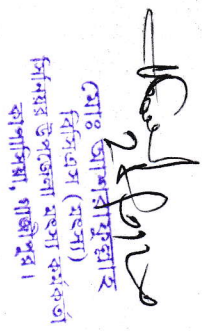 মোঃ আশরাফুল্লাহ
বিসিএস (মৎস্য)
সিনিয়র উপজেলা মৎস্য কর্মকর্তা
কাপাসিয়া, গাজীপুর।